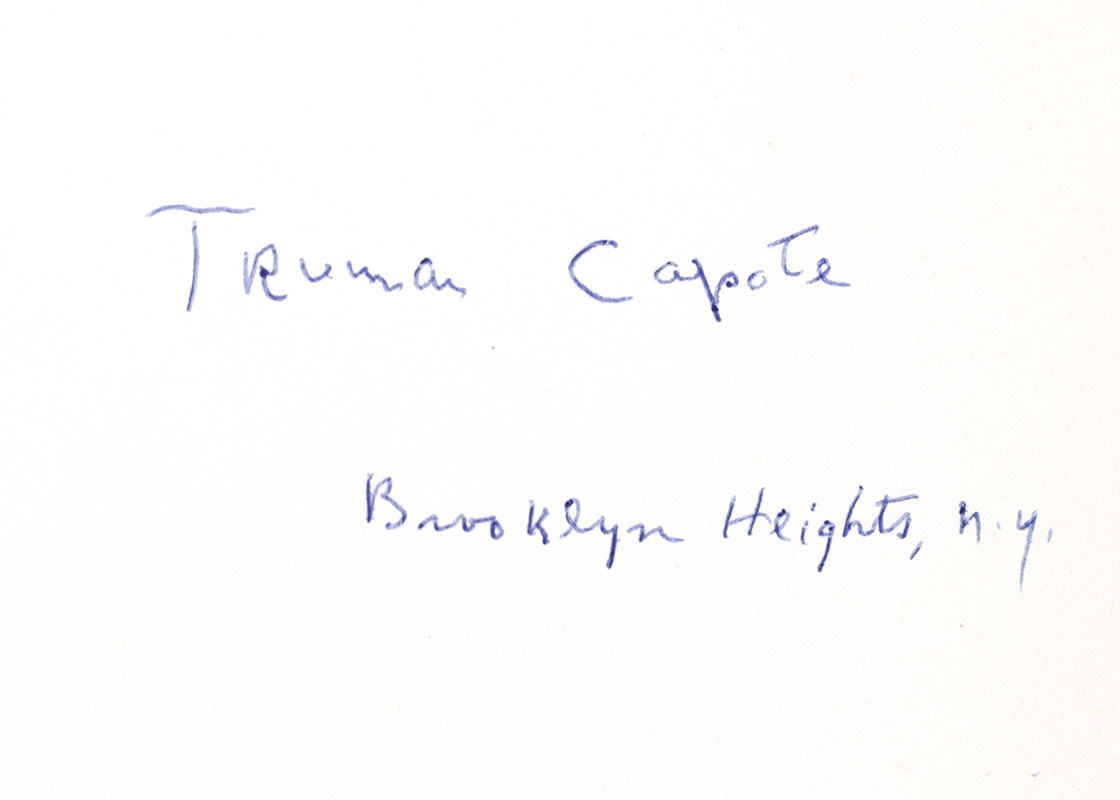 Truman Capote
Brooklyn Heights, n.y.